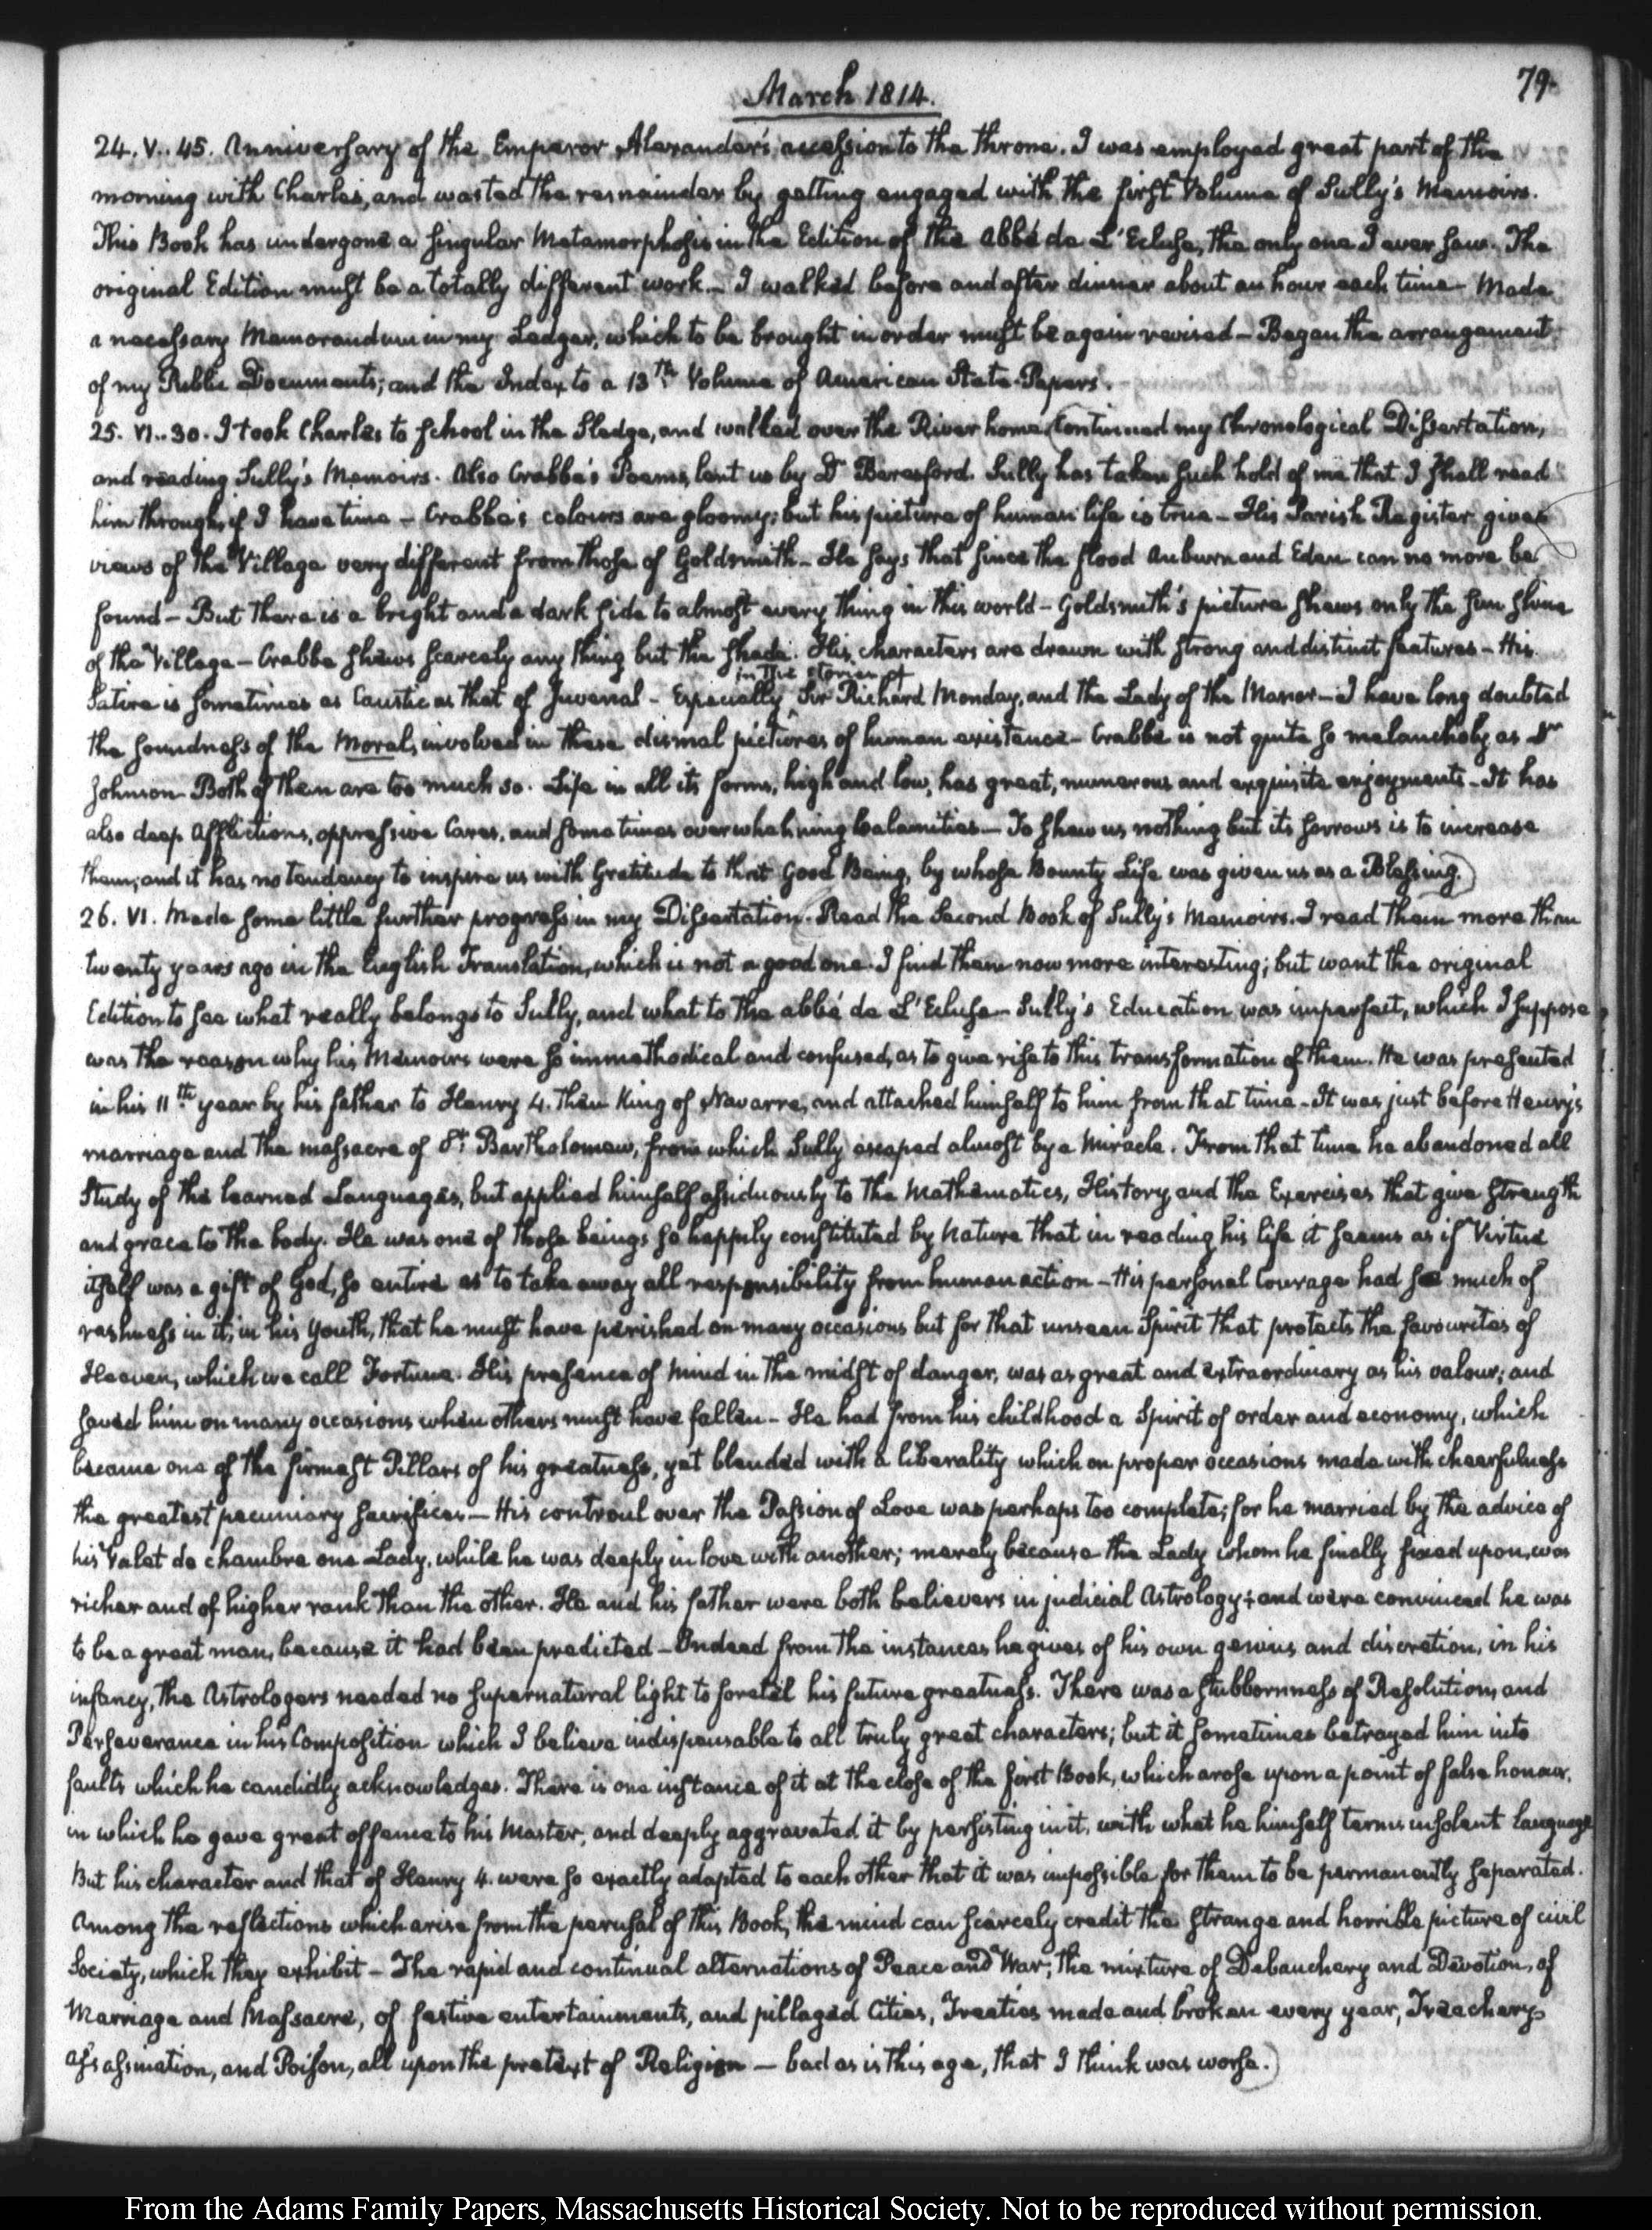 March 1814.
79.
24. V.. 45. Anniversary of the Emperor Alexander's accession to the throne. I was employed great part of the
morning with Charles, and wasted the remainder by getting engaged with the first Volume of Sully's Memoirs.
This Book has undergone a singular Metamorphosis in the Edition of the Abbé de L'Ecluse, the only one I ever saw. The
original Edition must be a totally different work — I walked before and after dinner about an hour each time — Made
a necessary Memorandum in my Ledger, which to be brought in order must be again revised — Began the arrangement
of my Public Documents; and the Index to a 13th Volume of American State-Papers.
25. VI.. 30. I took Charles to school in the Sledge, and walked over the River home (Continued my Chronological Dissertation,
and reading Sully's Memoirs. Also Crabbe's Poems, lent us by Dr Beresford. Sully has taken such hold of me that I shall read
him through, if I have time — Crabbe's colours are gloomy; but his picture of human life is true — His Parish Register gives
views of the Village very different from those of Goldsmith — He says that since the flood Auburn and Eden can no more be
found — But there is a bright and a dark side to almost every thing in this world — Goldsmith's picture shews only the sun shine
of the Village — Crabbe shews scarcely any thing but the shade. His characters are drawn with strong and distinct features — His
in the stories of
Satire is sometimes as Caustic as that of Juvenal — Especially Sir Richard Monday, and the Lady of the Manor — I have long doubted
the soundness of the Moral, involved in these dismal pictures of human existence — Crabbe is not quite so melancholy as Dr
Johnson — Both of them are too much so. Life in all its forms, high and low, has great, numerous and exquisite enjoyments — It has
also deep Afflictions, oppressive Cares, and sometimes overwhelming Calamities — To shew us nothing but its sorrows is to increase
them; and it has no tendency to inspire us with Gratitude to that Good Being, by whose Bounty Life was given us as a Blessing.)
26. VI. Made some little further progress in my Dissertation. (Read the Second Book of Sully's Memoirs. I read them more than
twenty years ago in the English Translation, which is not a good one. I find them now more interesting; but want the original
Edition to see what really belongs to Sully, and what to the abbé de L'Ecluse — Sully's Education was imperfect, which I suppose
was the reason why his Memoirs were so immethodical and confused, as to give rise to this transformation of them. He was presented
in his 11th year by his father to Henry 4. then King of Navarre, and attached himself to him from that time — It was just before Henry's
marriage and the massacre of St Bartholomew, from which Sully escaped almost by a Miracle. From that time he abandoned all
Study of the learned Languages, but applied himself assiduously to the Mathematics, History, and the Exercises that give strength
and grace to the body. He was one of those beings so happily constituted by Nature that in reading his life it seems as if Virtue
itself was a gift of God, so entire as to take away all responsibility from human action — His personal Courage had so much of
rashness in it, in his Youth, that he must have perished on many occasions but for that unseen Spirit that protects the favourites of
Heaven, which we call Fortune. His presence of mind in the midst of danger, was as great and extraordinary as his valour; and
saved him on many occasions when others must have fallen — He had from his childhood a Spirit of order and economy, which
became one of the firmest Pillars of his greatness, yet blended with a liberality which on proper occasions made with cheerfulness
the greatest pecuniary sacrifices — His controul over the Passion of Love was perhaps too complete; for he married by the advice of
his Valet de chambre one Lady, while he was deeply in love with another; merely because the Lady whom he finally fixed upon, was
richer and of higher rank than the other. He and his father were both believers in judicial Astrology; and were convinced he was
to be a great man, because it had been predicted — Indeed from the instances he gives of his own genius and discretion, in his
infancy, the Astrologers needed no supernatural light to foretel his future greatness. There was a stubbornness of Resolution, and
Perseverance in his Composition which I believe indispensable to all truly great characters; but it sometimes betrayed him into
faults which he candidly acknowledges. There is one instance of it at the close of the first Book, which arose upon a point of false honour,
in which he gave great offence to his Master, and deeply aggravated it by persisting in it, with what he himself terms insolent language
But his character and that of Henry 4. were so exactly adapted to each other that it was impossible for them to be permanently separated.
Among the reflections which arise from the perusal of this Book, the mind can scarcely credit the strange and horrible picture of civil
Society, which they exhibit — The rapid and continual alternations of Peace and War; the mixture of Debauchery and Devotion, of
Marriage and Massacre, of festive entertainments, and pillaged Cities, Treaties made and broken every year, Treachery,
Assassination, and Poison, all upon the pretext of Religion — bad as is this age, that I think was worse.)
From the Adams Family Papers, Massachusetts Historical Society. Not to be reproduced without permission.